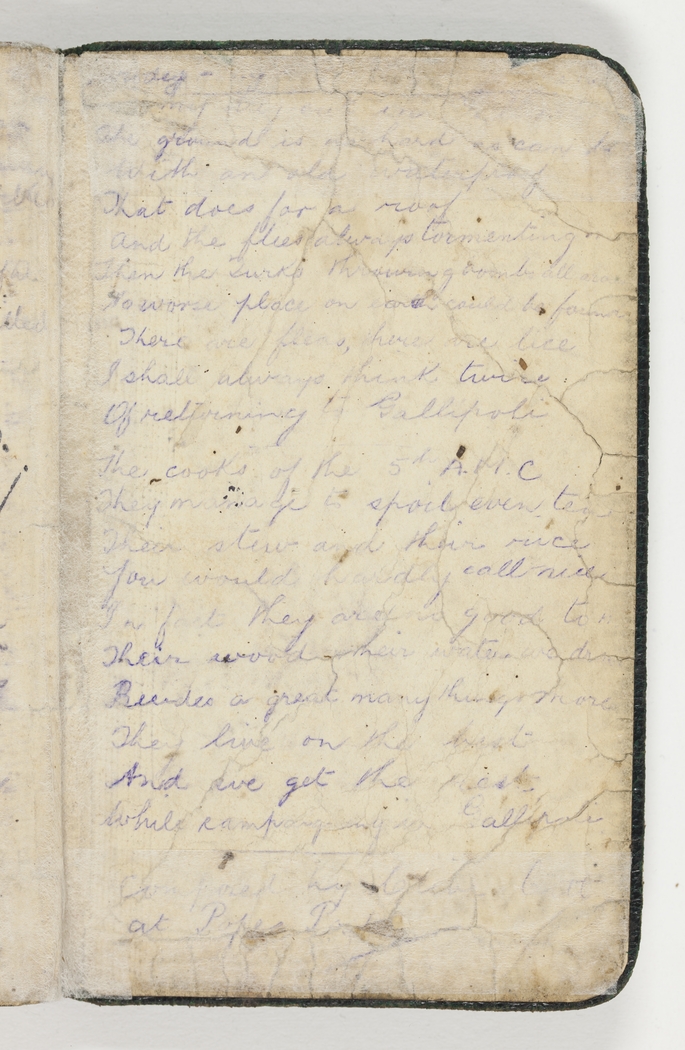 in
The ground is as hard as can be
With an old waterproof
That does for a roof
And the flies always tormenting
Then the Turks throwing bombs all
No worse place on earth could be found
There are fleas, there are lice
I shall always think twice
Of returning to Gallipoli
The cooks of the 5th A.M.C
They manage to spoil even tea
Their stew and their rice
You would hardly call nice
In fact they are no good to
Their wood their water we draw
Besides a great many things more
The live on the best
And we get the rest
While campaigning in
composed by
at Popes